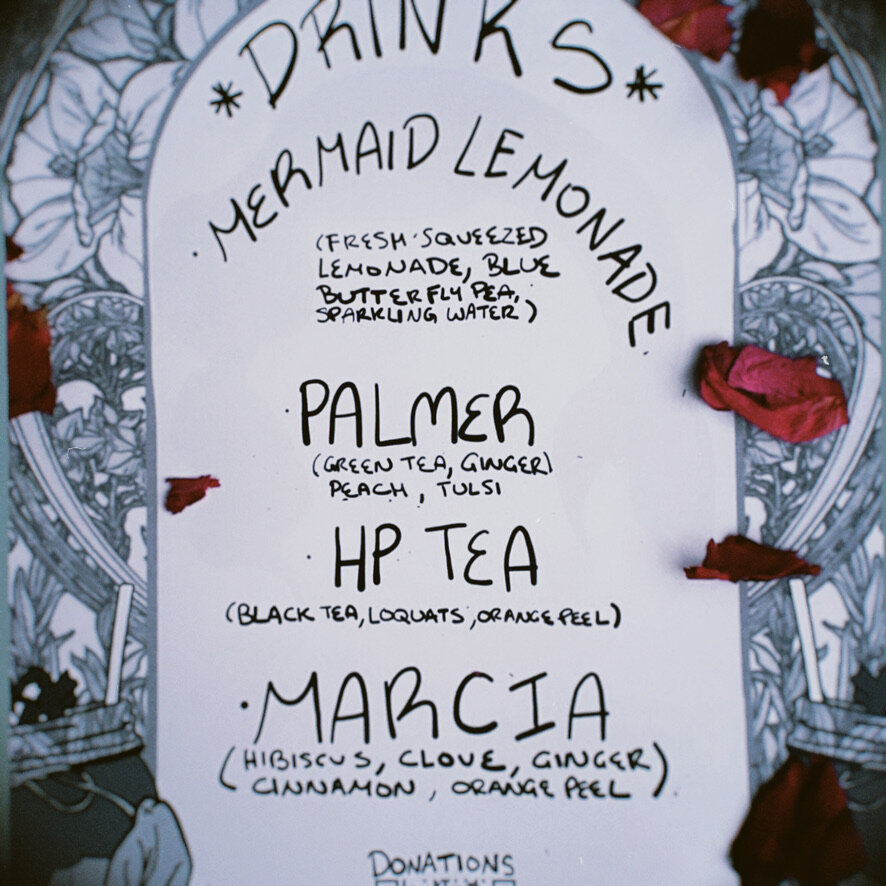 *DRINKS*
·MERMAID LEMONADE·
(FRESH·SQUEEZED
LEMONADE, BLUE
BUTTERFLY PEA,
SPARKLING WATER)
·PALMER
(GREEN TEA, GINGER)
PEACH, TULSI
·HP TEA
(BLACK TEA, LOQUATS, ORANGE PEEL)
·MARCIA
(HIBISCUS, CLOVE, GINGER)
CINNAMON, ORANGE PEEL
DONATIONS